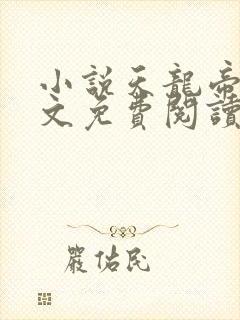 小説天龍帝
文免費閱讀
嚴佑民